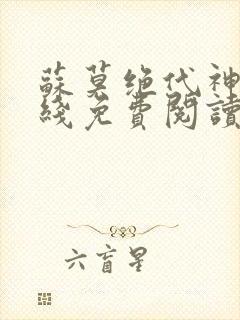 蘇莫绝代神
綫免費閱讀
六盲星